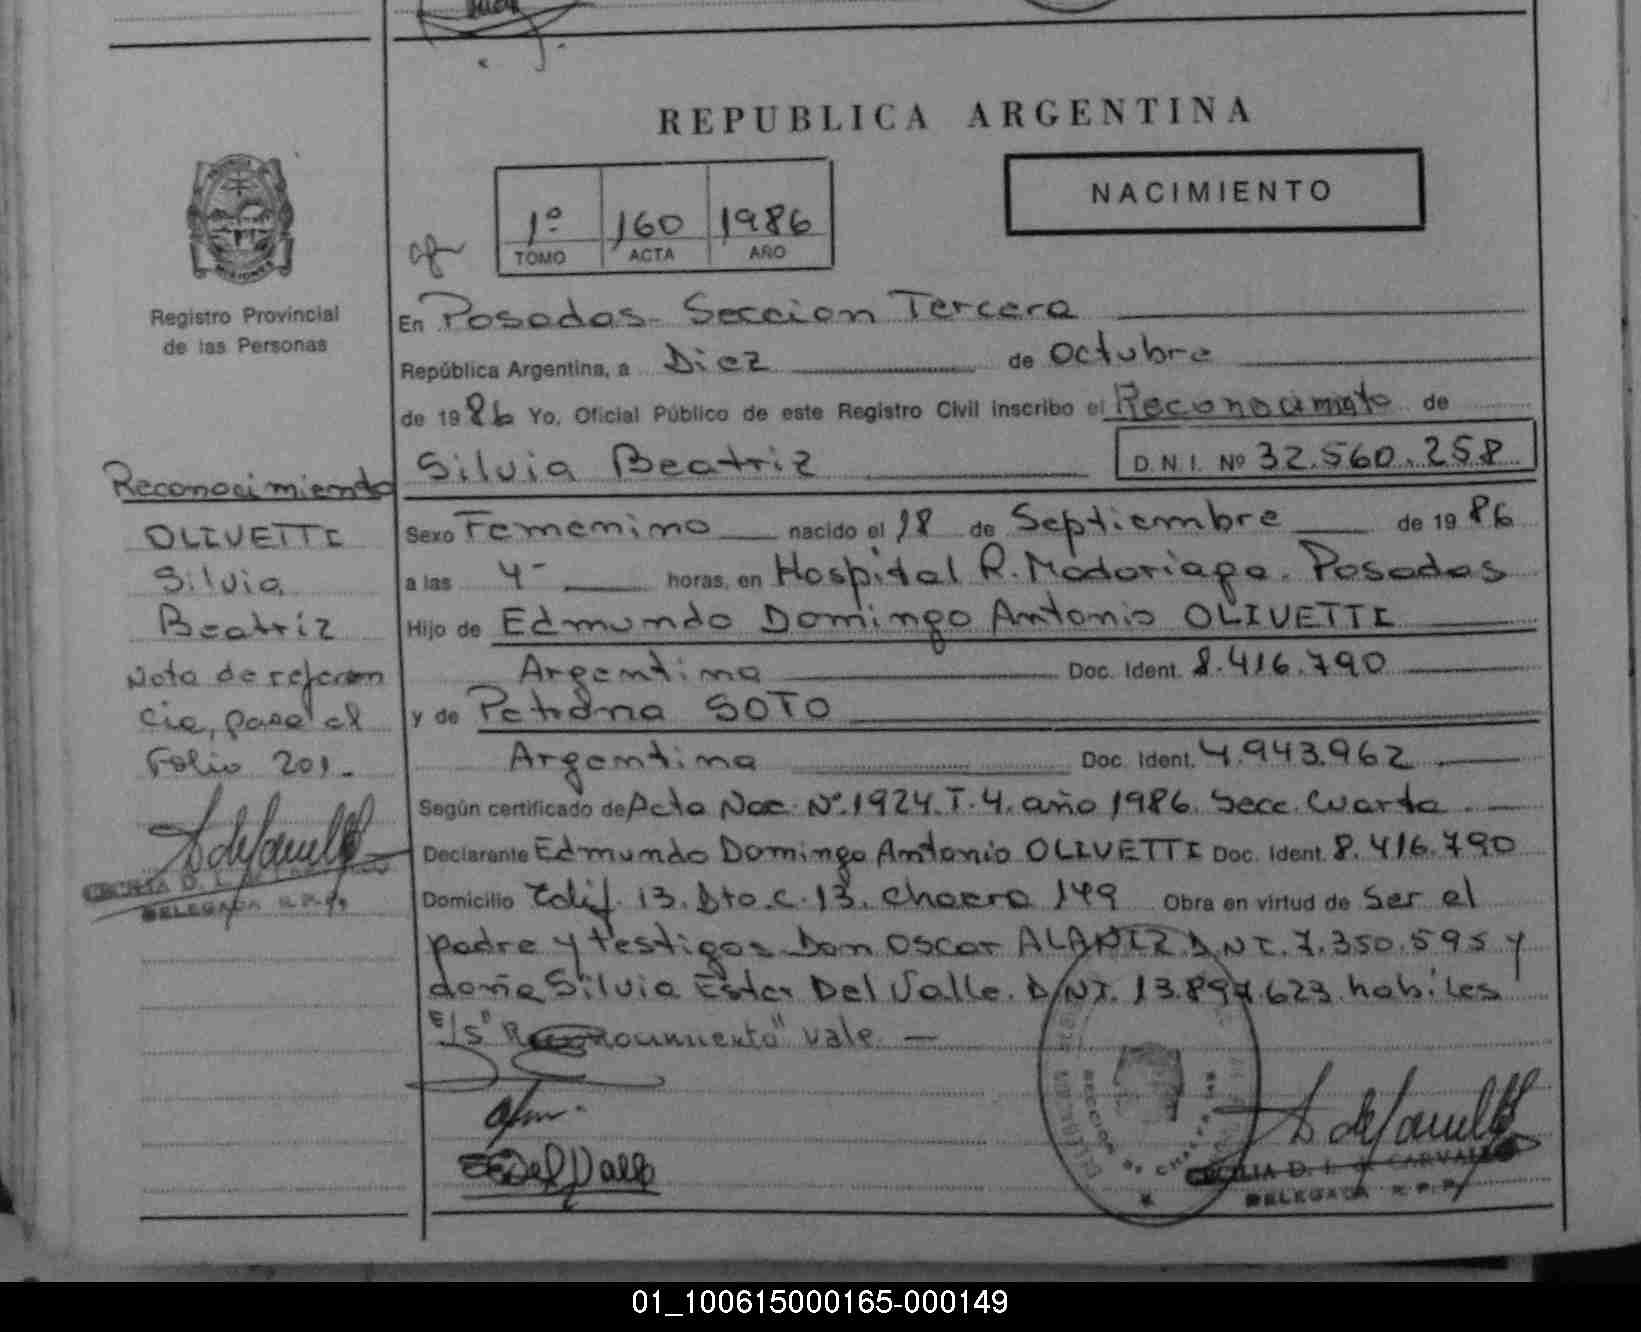 REPUBLICA ARGENTINA
NACIMIENTO
1º 160 1986
TOMO ACTA AÑO
MISIONES
Registro Provincial
de las Personas
En Posadas - Seccion Tercera
República Argentina, a Diez de Octubre
de 1986 Yo, Oficial Público de este Registro Civil inscribo el Reconocimiento de
Silvia Beatriz D.N.I. Nº 32.560.258
Sexo Femenino nacido el 18 de Septiembre de 1986
a las 4- horas, en Hospital R. Madariaga. Posadas
Hijo de Edmundo Domingo Antonio OLIVETTI
Argentina Doc. Ident. 8.416.790
y de Petrona SOTO
Argentina Doc. Ident. 4.943.962
Según certificado de Acta Nac. Nº.1924.T.4. año 1986. Secc. Cuarta
Declarante Edmundo Domingo Antonio OLIVETTI Doc. Ident. 8.416.790
Domicilio Edif. 13. Dto.c.13. Chacra 149 Obra en virtud de Ser el
padre y testigos Don Oscar ALANIZ D.N.I. 7.350.595 y
doña Silvia Ester Del Valle. D.N.I. 13.897.623 habiles
E/S" Reconocimiento" vale. —
Del Valle
CECILIA D. I. de CARVALLO
DELEGADA R.P.P.
Reconocimiento
OLIVETTI
Silvia
Beatriz
Nota de referen
cia, pase al
Folio 201.
CECILIA D. I.
DELEGADA R.P.P.
01_100615000165-000149